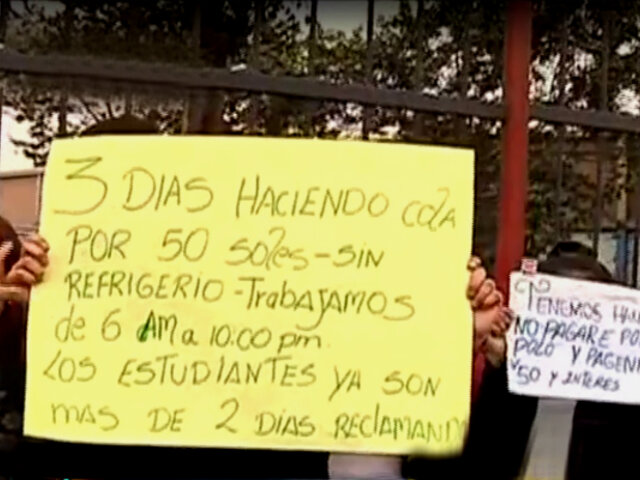 3 DIAS HACIENDO COLA
POR 50 Soles - SIN
REFRIGERIO - TrabaJAMOS
de 6 AM a 10:00 pm.
LOS ESTUDIANTES YA SON
MAS DE 2 DIAS RECLAMAND
TENEMOS HAM
NO PAGARE POR
POLO Y PAGEN
50 Y INTERES